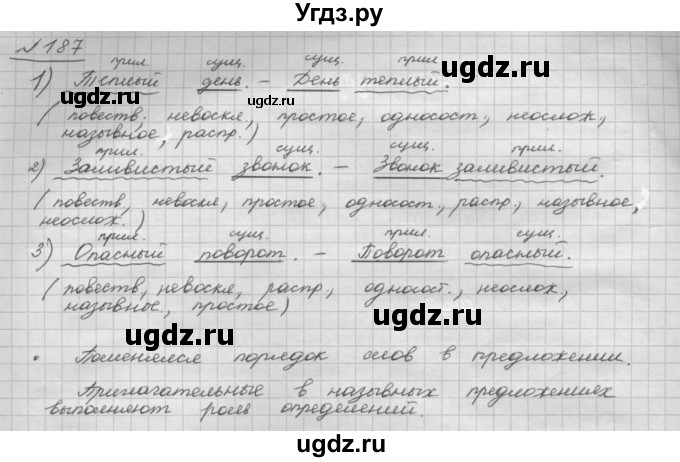 Угдз.ру
№187
прил. сущ. сущ. прил
1) Тёплый день. – День теплый.
(повеств. невоскл, простое, односост., неослож,
назывное, распр.)
прил. сущ. сущ. прил.
2) Заливистый звонок. – Звонок заливистый.
(повеств, невоскл, простое, односост, распр., назывное,
неослож.)
прил. сущ. прил. сущ.
3) Опасный поворот. – Поворот опасный.
(повеств, невоскл, распр., односост., неослож,
назывное., простое)
• Поменялся порядок слов в предложении.
Прилагательные в назывных предложениях
выполняют роль определений.
ugdz.ru
ugdz.ru
ugdz.ru
ugdz.ru
ugdz.ru
ugdz.ru
ugdz.ru
ugdz.ru
ugdz.ru